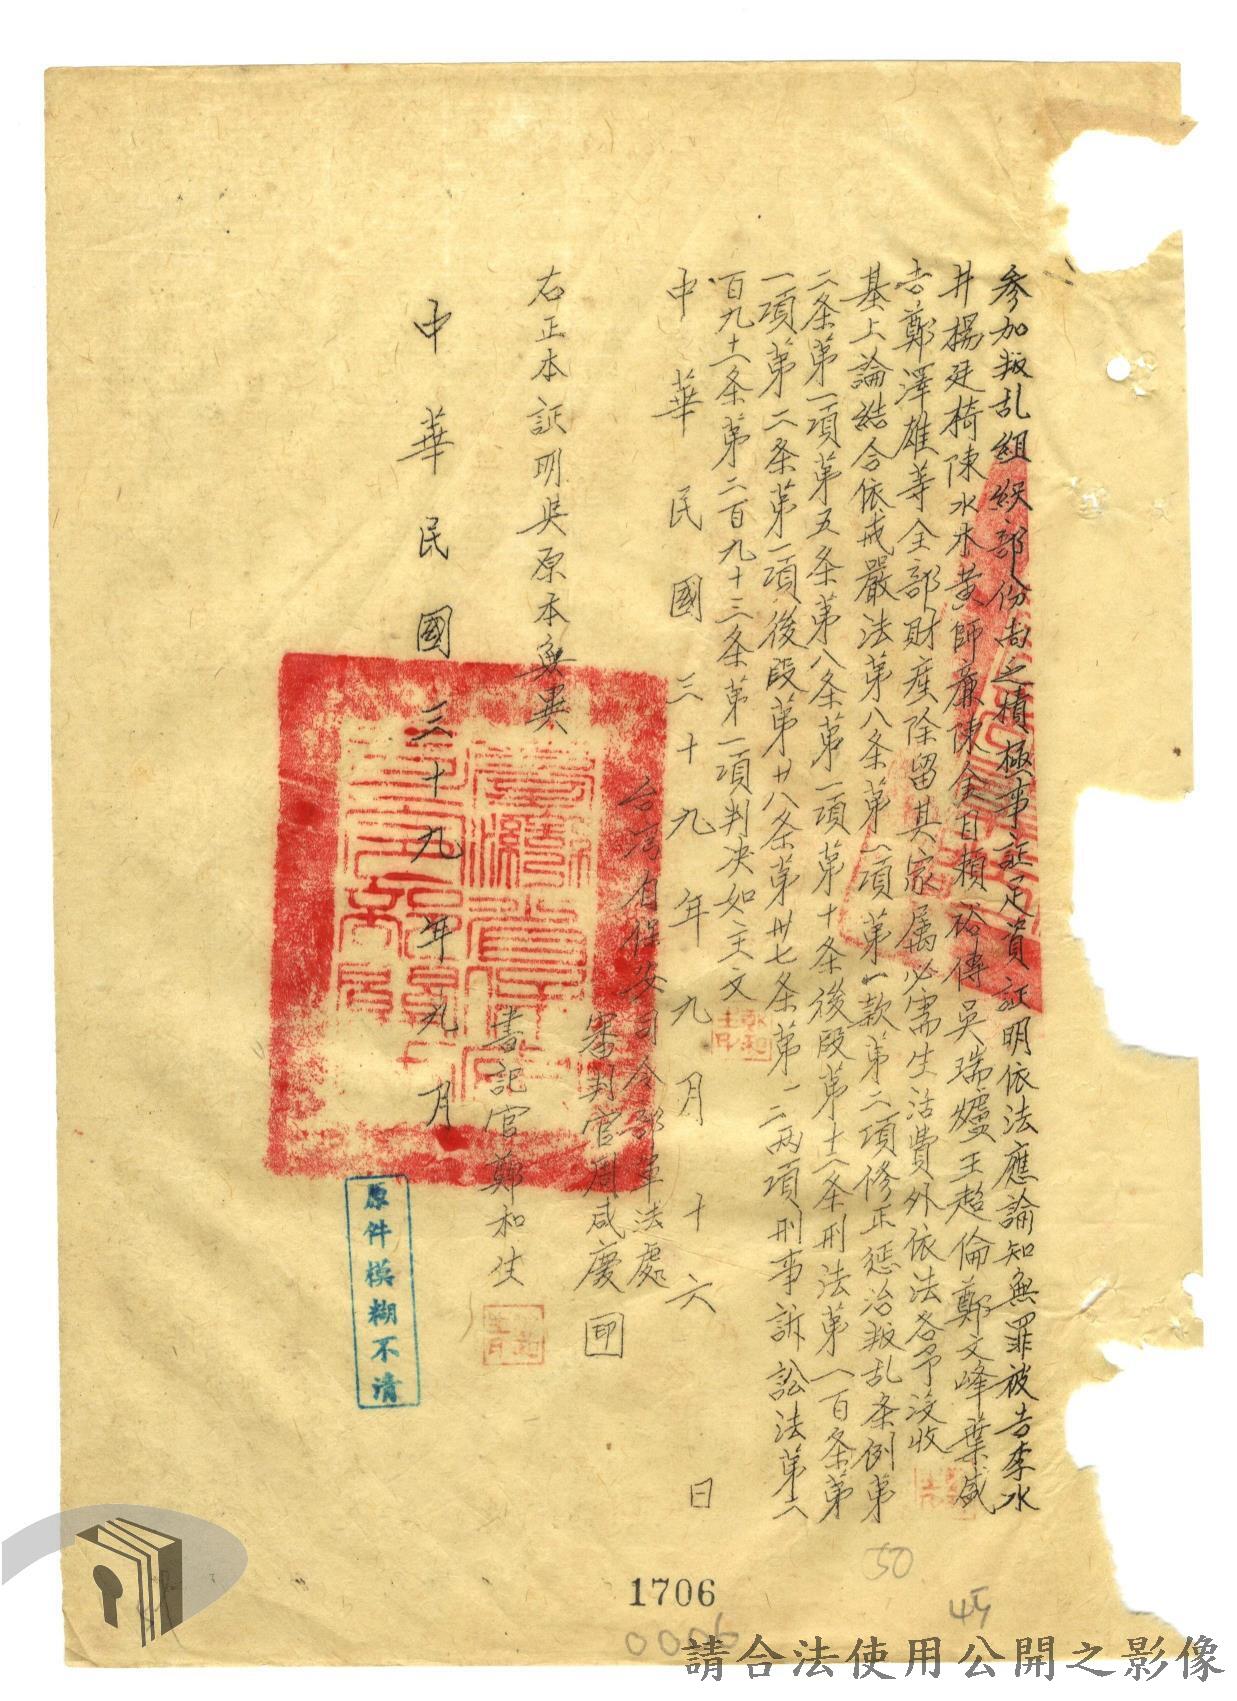 参加叛乱組織部份尚乏積極事証足資証明依法應論知無罪被告李水
井楊廷椅陳水木黃師廉陳金目賴裕傳吳瑞爐王超倫鄭文峰葉盛
吉鄭澤雄等全部財產除留其家屬必需生活費外依法各予沒收
基上論結合依戒嚴法第八条第一項第一款第二項修正惩治叛乱条例第
二条第一項第五条第八条第一項第十条後段第十二条刑法第一百条第
一項第二条第一項後段第廿八条第卅七条第一二兩項刑事訴訟法第二
百九十一条第二百九十三条第一項判决如主文
中華民國三十九年九月十六日
台湾省保安司令部軍法處
審判官周咸慶 印
右正本証明與原本無異
書記官鄭和生
中華民國三十九年九月
原件模糊不清
50
45
1706
0006
請合法使用公開之影像